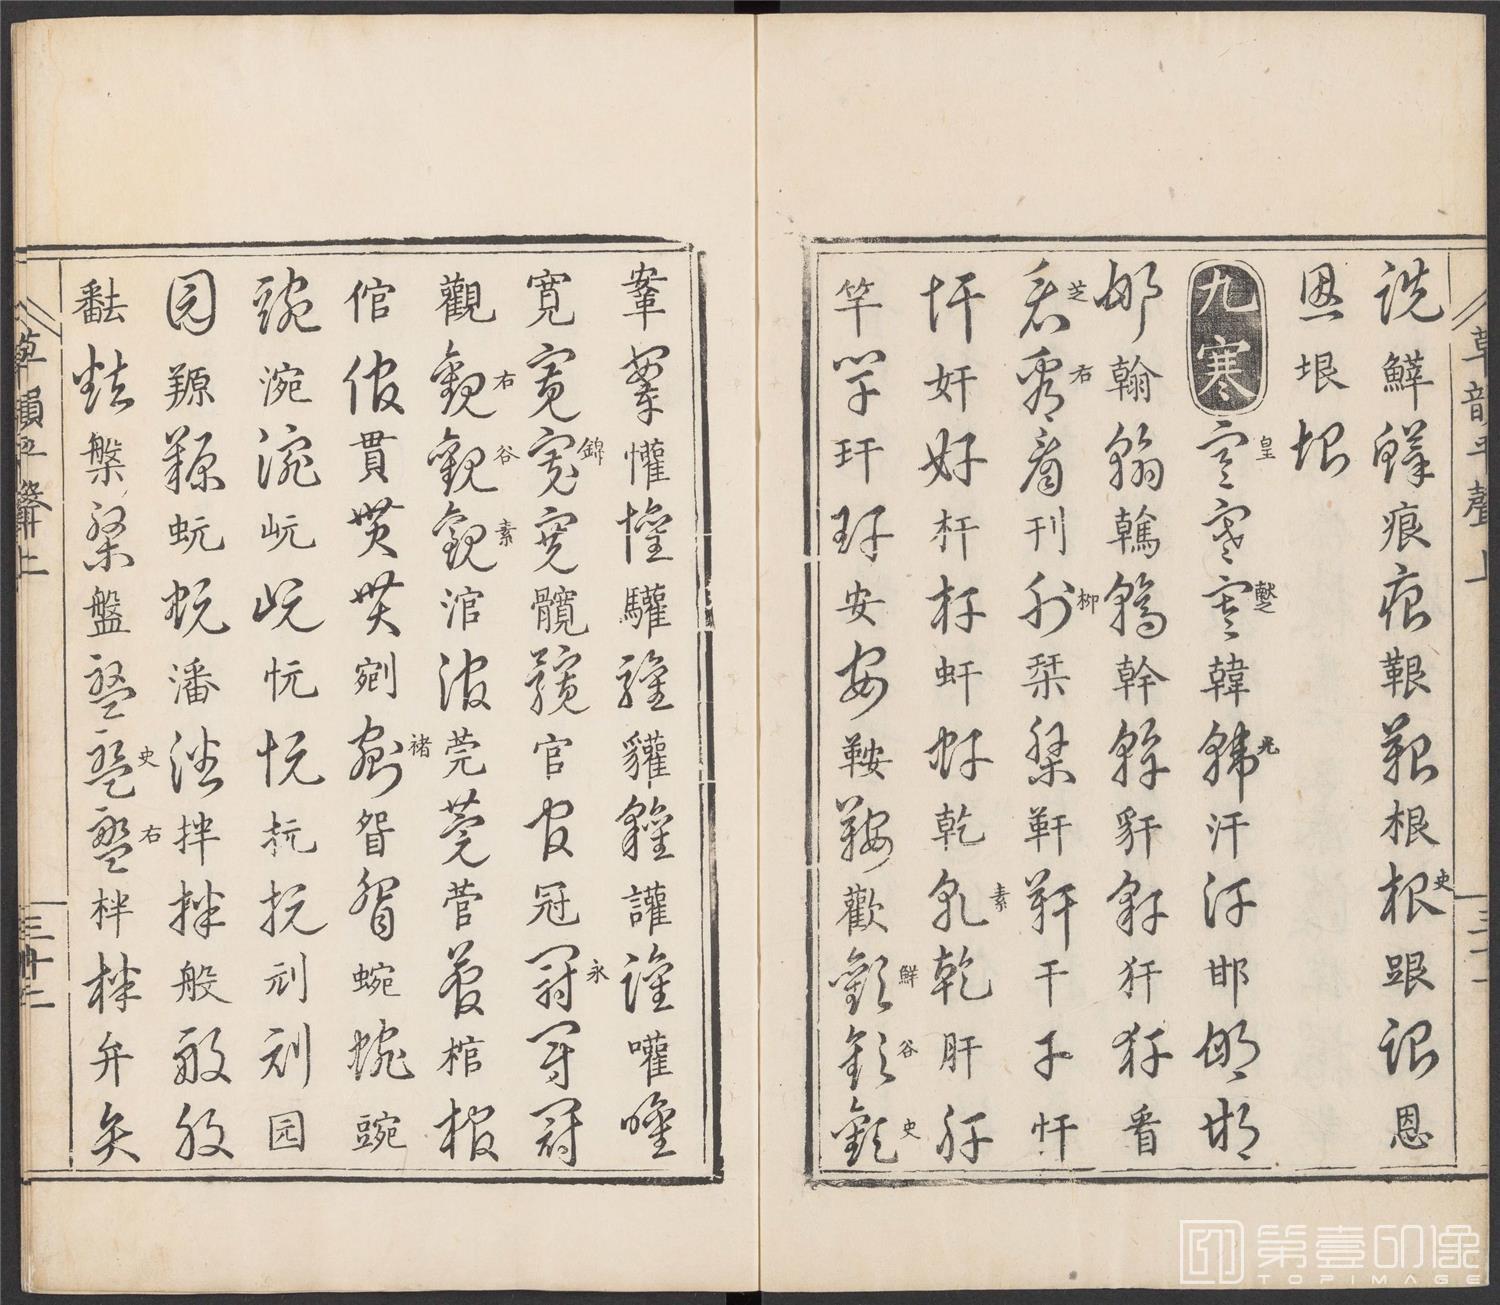 草韻平聲上
詵痕痕艱艱根根史跟跟恩
恩垠垠
九寒寒皇寒寒韓韓光汗汗邯邯邯
邯翰翰鶾鶾幹幹豻豻犴犴看
看芝看右看刊刊柳栞栞靬靬干干忓
忓奸奸杆杆虷虷乾乾素乾肝肝
竿竿玕玕安安鞍鞍歡歡鮮歡谷歡史
鞌鞌懽懽驩驩貛貛讙讙嚾嚾
寬寬寬錦寬髖髖官官冠冠永冠冠
觀觀右觀谷觀素涫涫莞莞菅菅棺棺
倌倌貫貫貫剜剜褚眢眢蜿蜿豌
豌涴涴岏岏忨忨抏抏刓刓园
园羱羱蚖蚖潘潘拌拌般般般
槃槃盤盤盤史盤右柈柈弁弁
草韻平聲上
三十二
第壹印像
TOPIMAGE